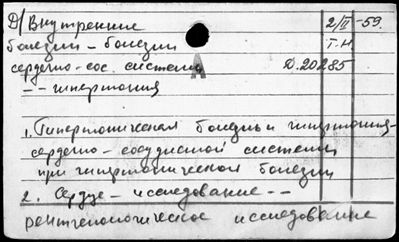 Д/ Внутренние 2/II-59.
болезни - болезни Т.Н.
сердечно-сос. системы Д.20285
А
- - гипертония
1. Гипертоническая болезнь и гипертония -
сердечно-сосудистой системы
при гипертонической болезни
2. Сердце - исследование - -
рентгенологическое исследование